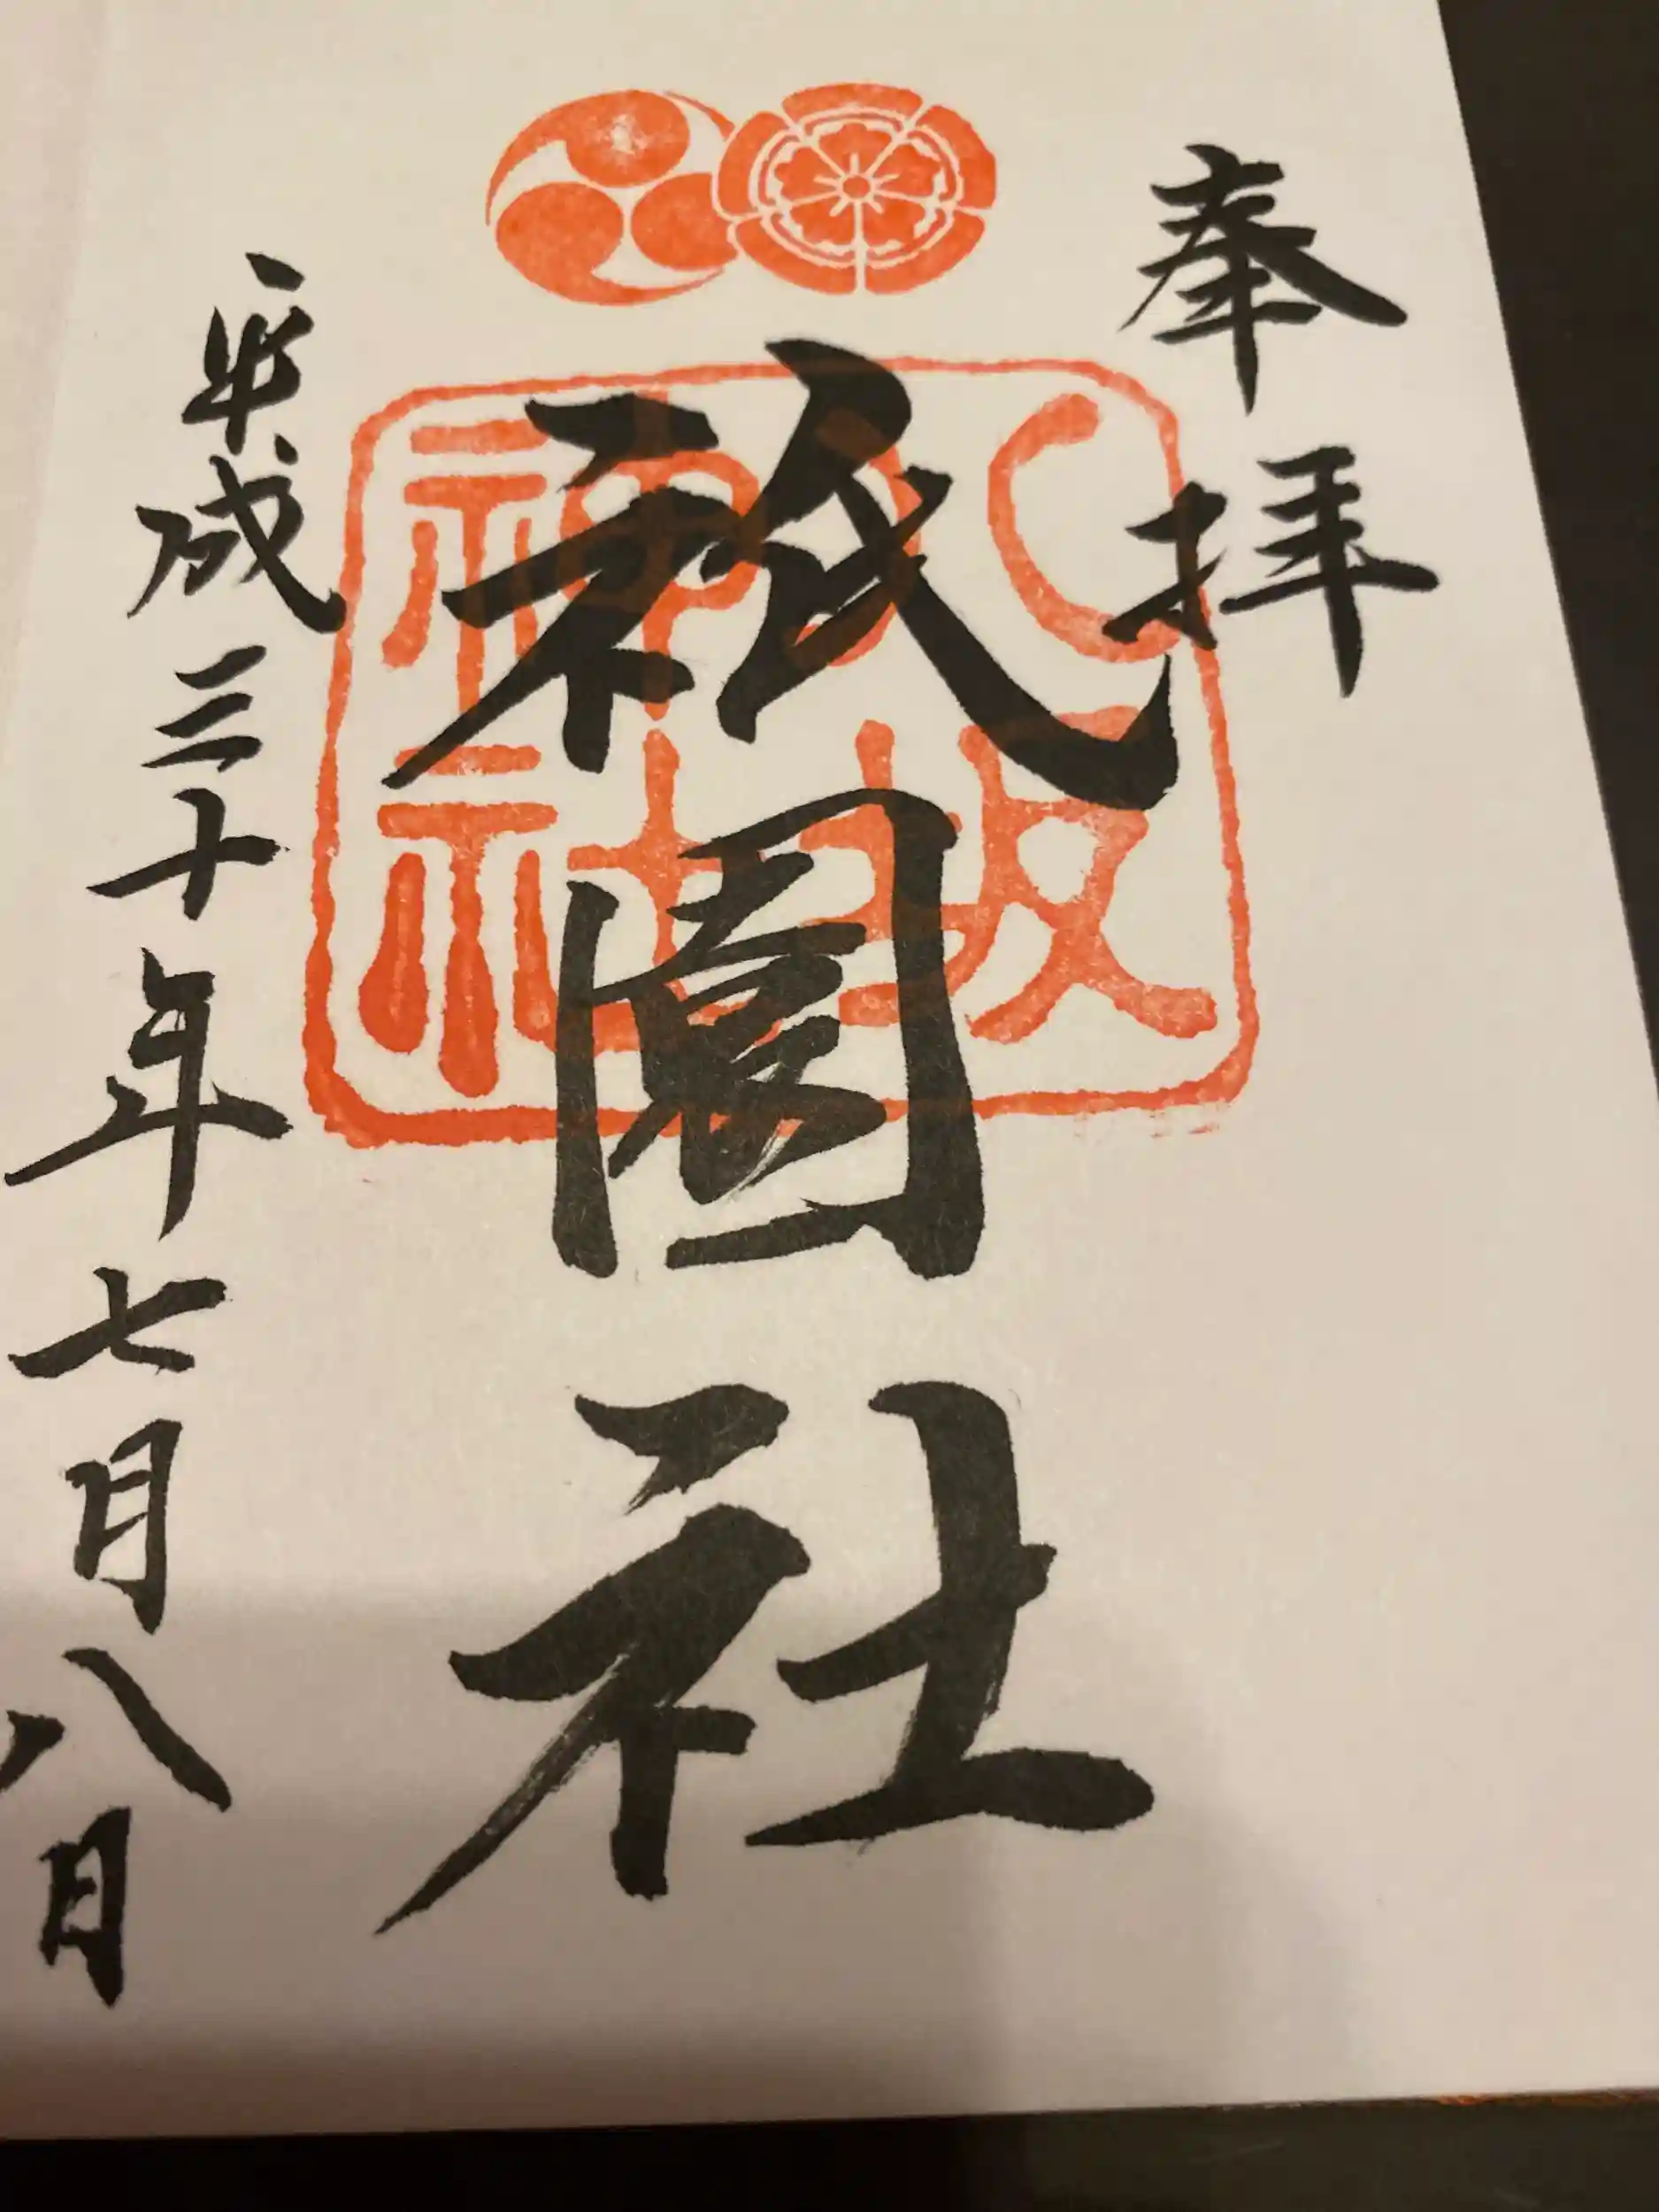 奉拝
祇園社
八坂神社
平成三十年七月八日